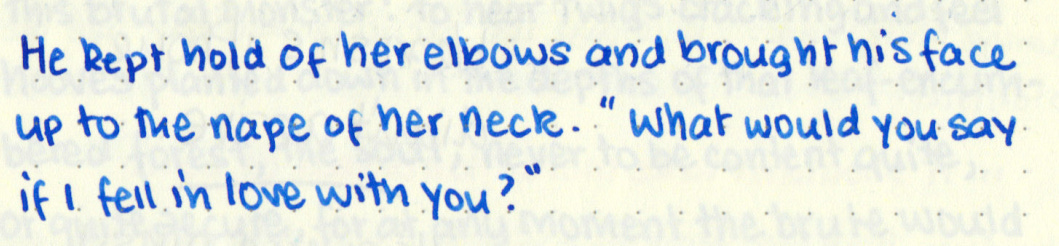 He kept hold of her elbows and brought his face
up to the nape of her neck. "What would you say
if I fell in love with you?"